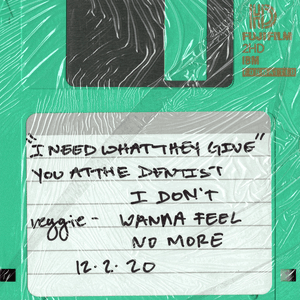 FUJI FILM
2HD
IBM
"I NEED WHAT THEY GIVE"
YOU AT THE DENTIST
I DON'T
veggie - WANNA FEEL
NO MORE
12.2.20